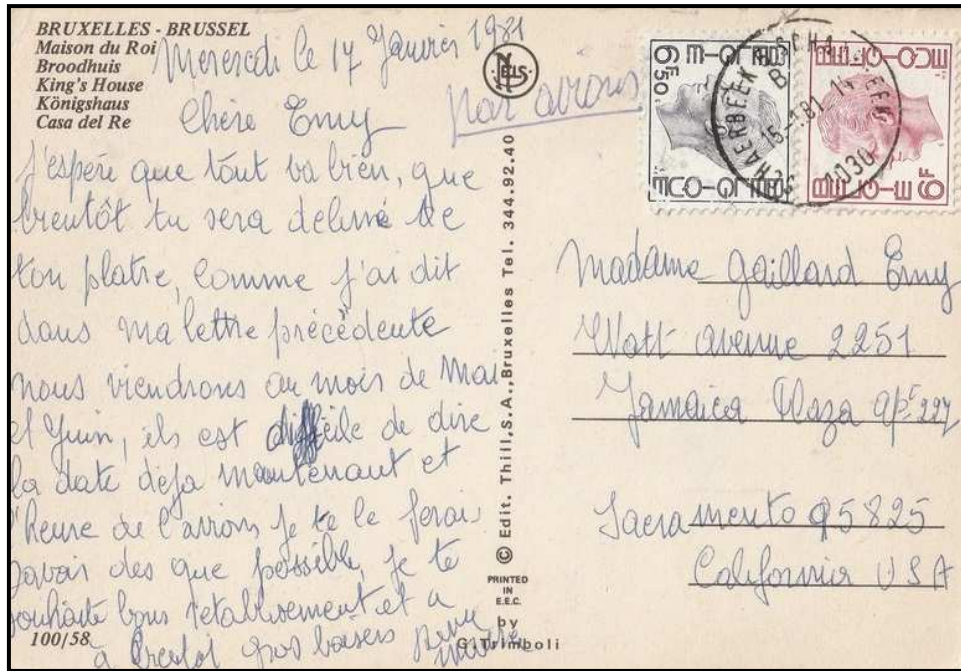 BRUXELLES - BRUSSEL
Maison du Roi
Broodhuis
King's House
Königshaus
Casa del Re
Mercredi le 14 Janvier 1981
par avions
Chère Emy
j'espère que tout va bien, que
bientôt tu sera delivré de
ton platre, comme j'ai dit
dans ma lettre précèdente
nous viendrons au mois de Mai
et Yuin, ils est difficile de dire
la date déja maintenant et
l'heure de l'avions je te le ferais
savoir des que possible, je te
souhaite bons retablissement et a
à bientot gros baisers
100/58
© Edit. Thill, S.A., Bruxelles Tel. 344.92.40
PRINTED
IN
E.E.C.
by
G. Trimboli
NELS
BELGIE-BELGIQUE
6F50
BELGIQUE-BELGIE
6F
SCHAERBEEK
1030
15-1-81 14
Madame Gaillard Emy
Watt avenue 2251
Jamaica Plaza apt 227
Sacramento 95825
Californie USA